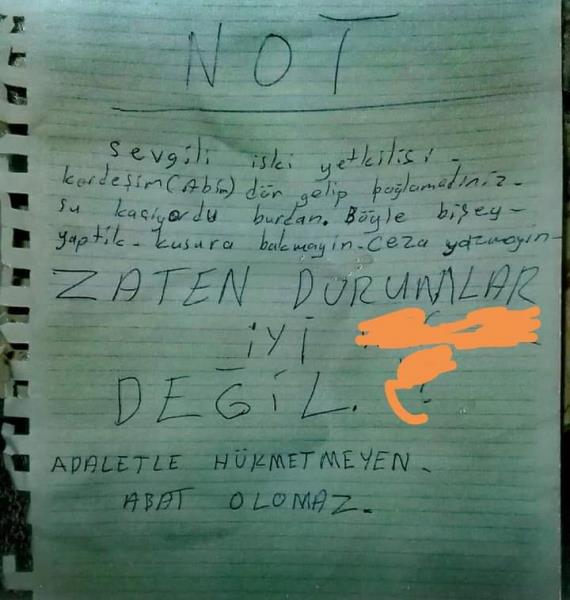 NOT
Sevgili iski yetkilisi -
kardeşim (Abim) dün gelip bağlamadınız -
su kaçıyordu burdan. Böyle bişey -
yaptık - kusura bakmayın - Ceza yazmayın -
ZATEN DURUMLAR
İYİ
DEĞİL. !
ADALETLE HÜKMETMEYEN.
ABAT OLOMAZ.